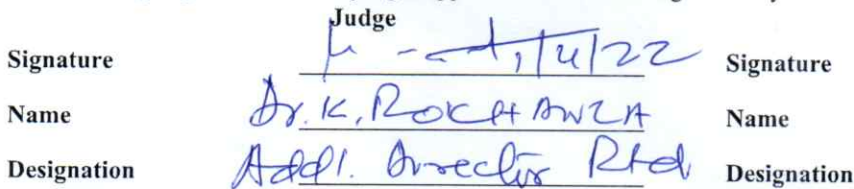 Judge
Signature 1/4/22 Signature
Name Dr. K. ROKHAWZA Name
Designation Addl. Director Rtd Designation